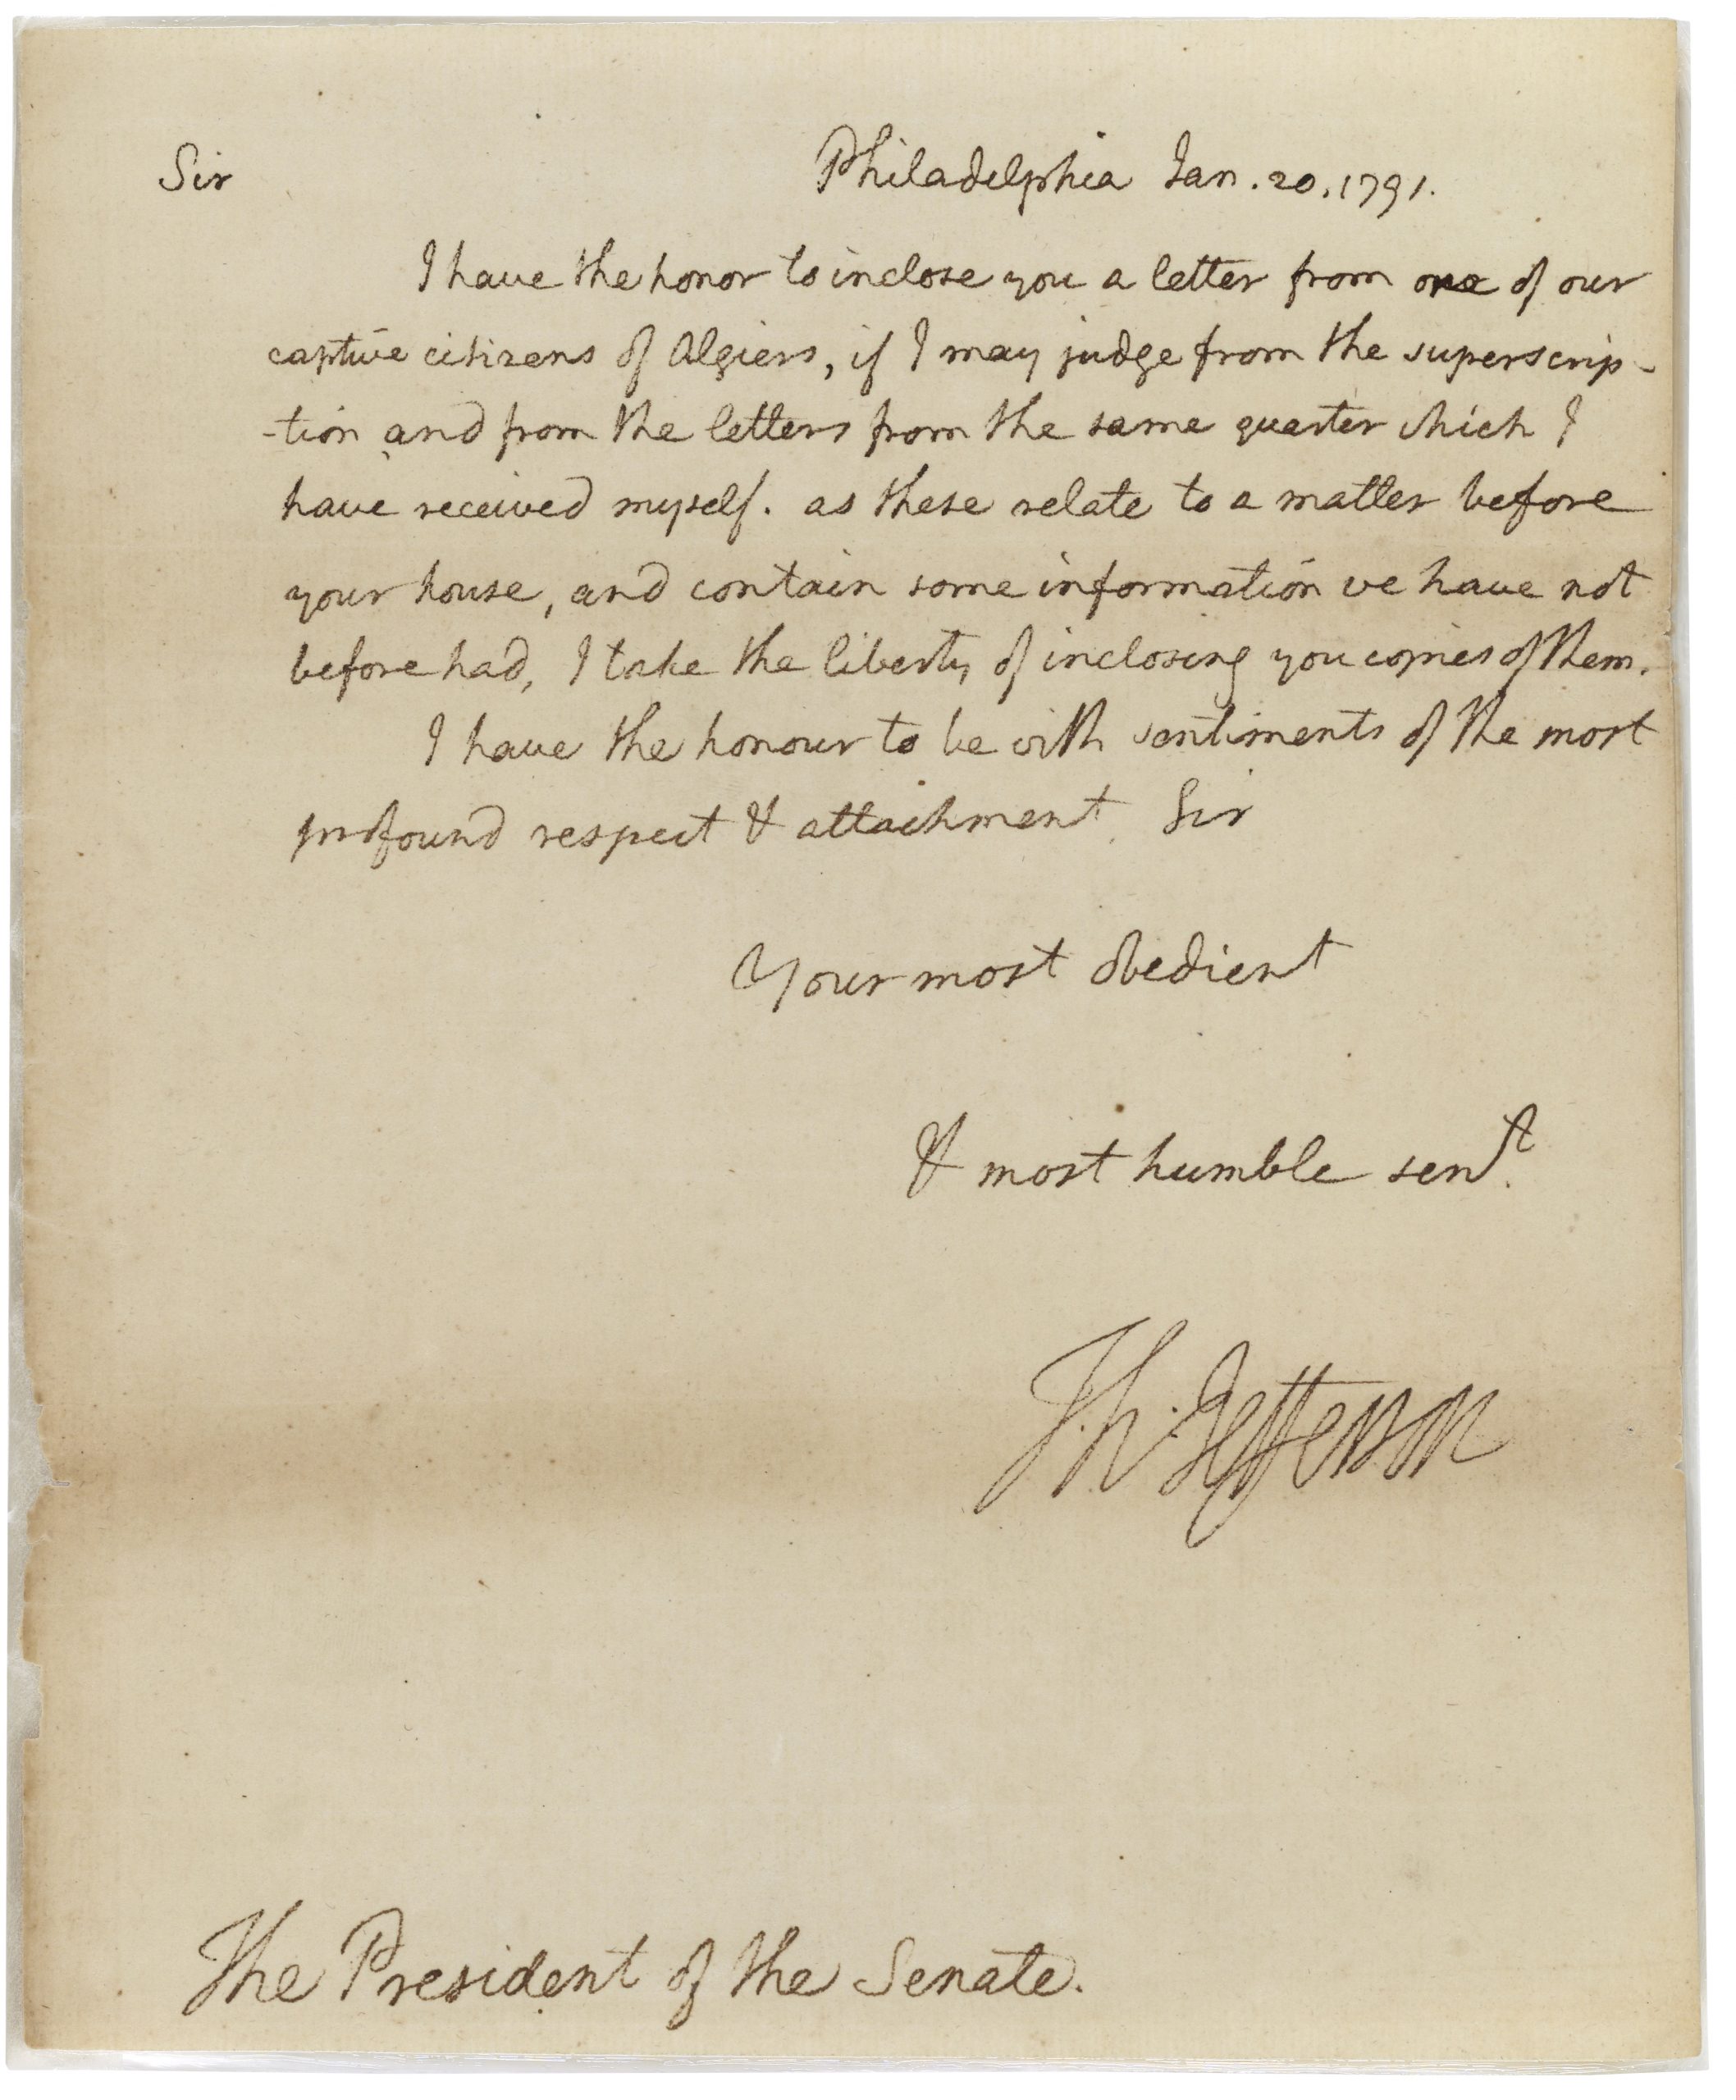 Sir Philadelphia Jan. 20. 1791.
I have the honor to inclose you a letter from one of our
captive citizens of Algiers, if I may judge from the superscrip-
-tion and from the letters from the same quarter which I
have received myself. as these relate to a matter before
your house, and contain some information we have not
before had, I take the liberty of inclosing you copies of them.
I have the honour to be with sentiments of the most
profound respect & attachment Sir
Your most obedient
& most humble servt.
Th: Jefferson
The President of the Senate.